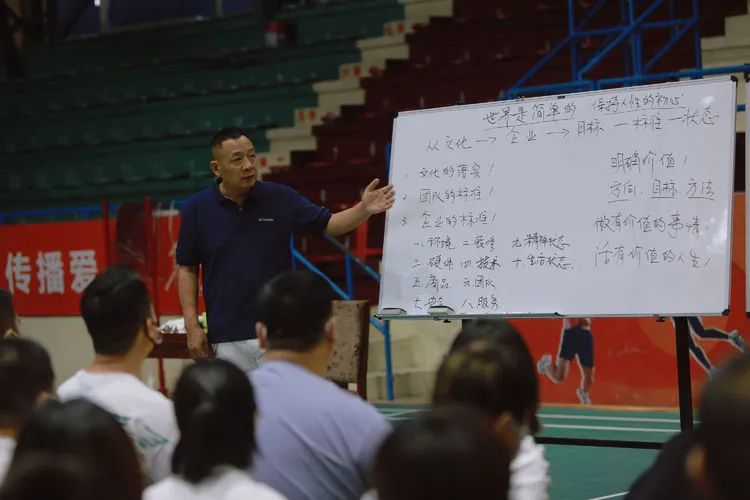 世界是简单的 保持人性的初心
从文化→企业→目标—标准—状态
文化的落实！
2 团队的标准！
3 企业的标准！
一.环境 二.装修 九.精神状态
三.硬件 四.技术 十.生活状态.
五.商品 六.团队
八.服务
明确价值！
方向.目标.方法
做有价值的事情,
活有价值的人生！
传播爱
Columbia